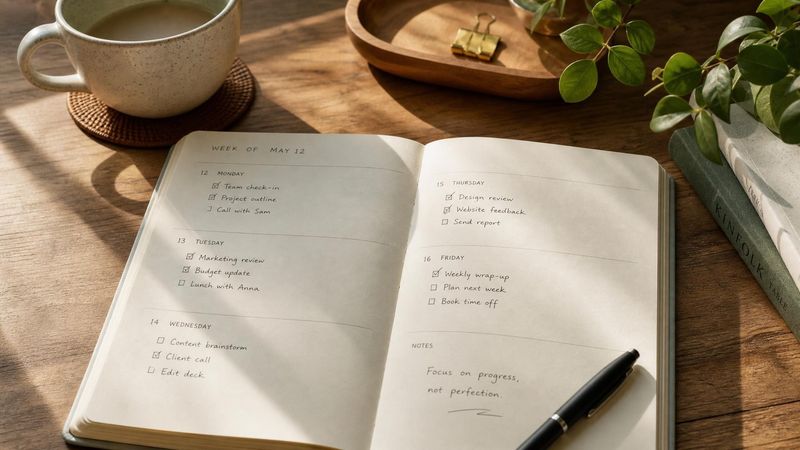 WEEK OF MAY 12
12 MONDAY
☑ Team check-in
☑ Project outline
☐ Call with Sam
13 TUESDAY
☑ Marketing review
☑ Budget update
☐ Lunch with Anna
14 WEDNESDAY
☐ Content brainstorm
☑ Client call
☐ Edit deck
15 THURSDAY
☑ Design review
☑ Website feedback
☐ Send report
16 FRIDAY
☑ Weekly wrap-up
☐ Plan next week
☐ Book time off
NOTES
Focus on progress,
not perfection.
KINFOLK